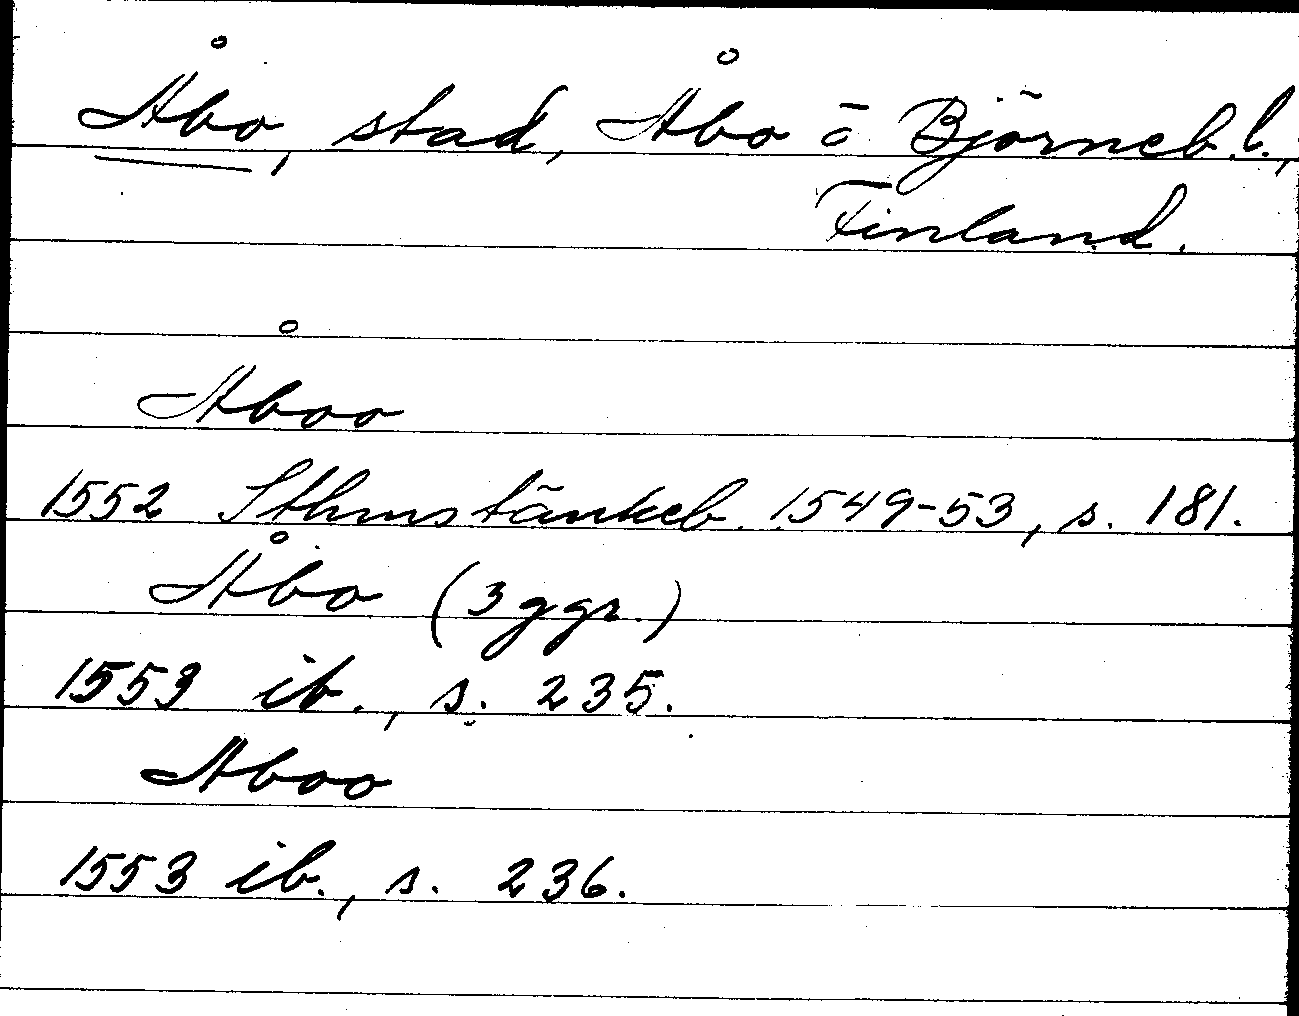 Åbo, stad, Åbo ö Björneb. l.,
Finland.
Åboo
1552 Sthms tänkeb. 1549-53, s. 181.
Åbo (3 ggr.)
1553 ib., s. 235.
Aboo
1553 ib., s. 236.